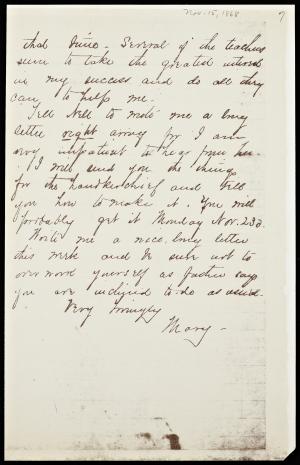 Nov. 15, 1868
7
that time. Several of the teachers
seem to take the greatest interest
in my success and do all they
can to help me.
Tell Nell to write me a long
letter right away for I am
very impatient to hear from her.
I will send you the things
for the handkerchief and tell
you how to make it. You will
probably get it Monday Nov. 23d.
Write me a nice long letter
this week and be sure not to
over work yourself as father says
you are inclined to do as usual.
Very lovingly
Mary -